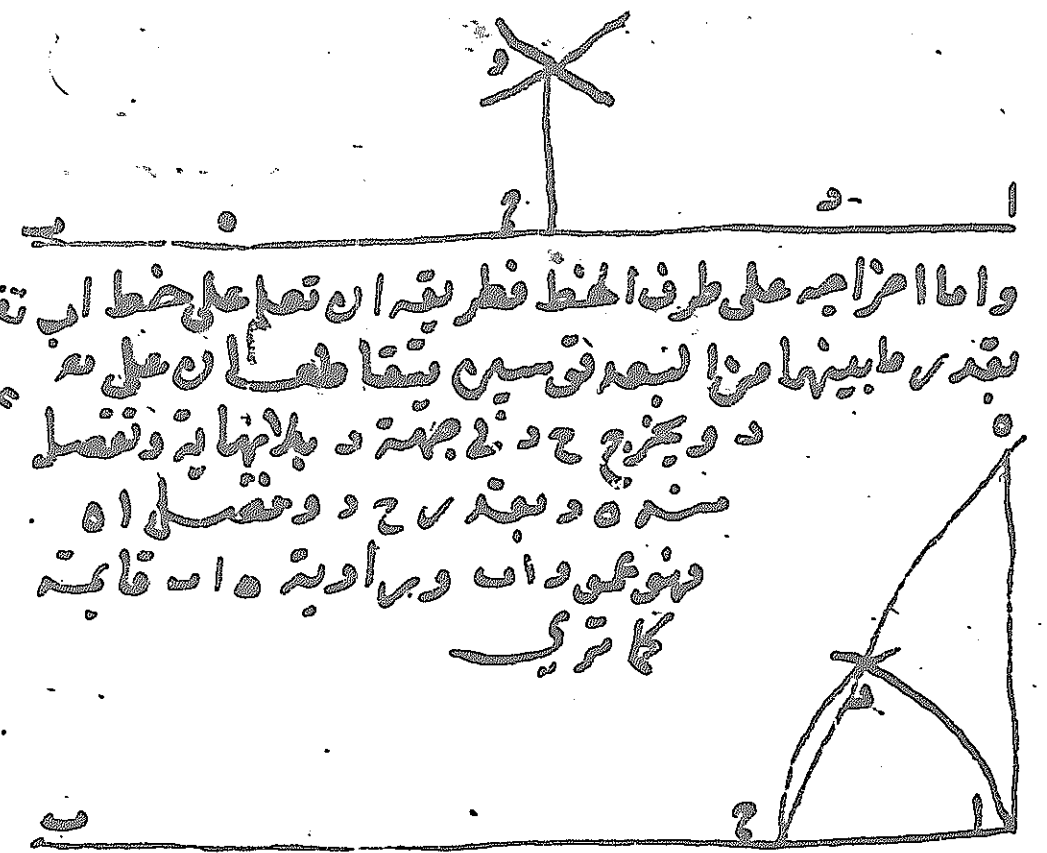 و
ا د ح ه ب
واما اخراجه على طرف الخط فطريقه ان تعلم على خط اب
بقدر ما بينهما من البعد قوسين يتقاطعان على
ه
د ويخرج ح د في جهة د بلانهاية ونفصل
منه ه د بقدر ح د ونصل ا ه
فهو عمود اب وزاوية ه اب قايمة
كما ترى
د
ا ح ب